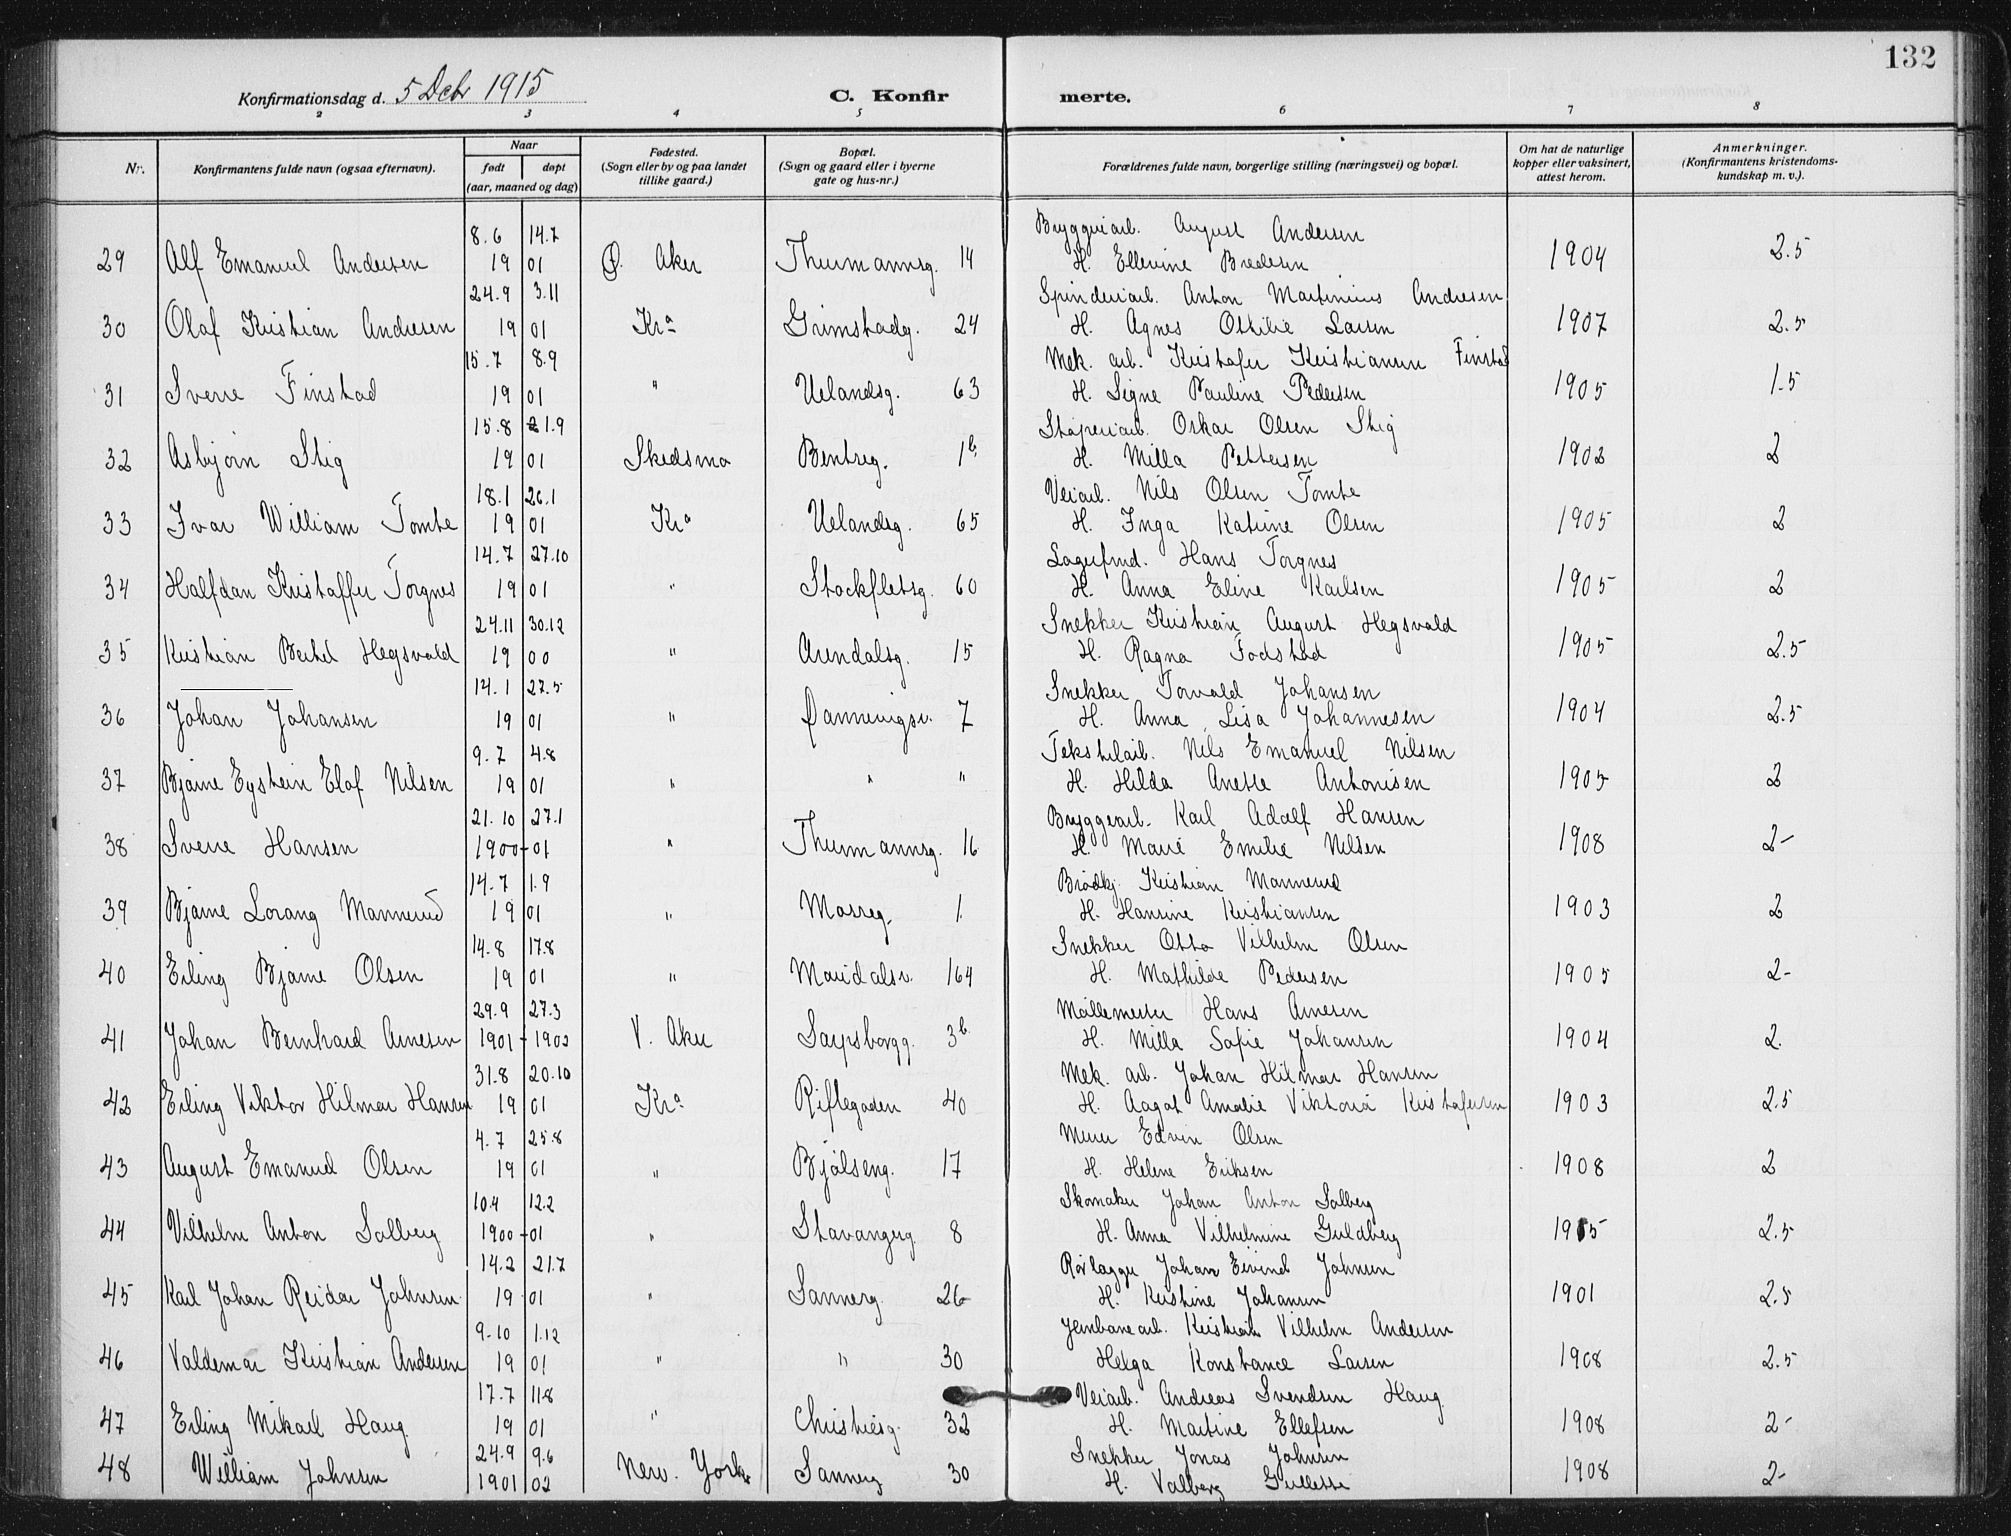 132
Konfirmationsdag d. 5 Debr 1915
C. Konfirmerte.
2 3 4 5 6 7 8
Nr. Konfirmantens fulde navn (ogsaa efternavn). Naar født døpt (aar, maaned og dag) Fødested. (Sogn eller by og paa landet tillike gaard.) Bopæl. (Sogn og gaard eller i byerne gate og hus-nr.) Forældrenes fulde navn, borgerlige stilling (næringsvei) og bopæl. Om hat de naturlige kopper eller vaksinert, attest herom. Anmerkninger. (Konfirmantens kristendomskundskap m. v.).
8.6 14.7 Bryggeriarb. August Andersen
29 Alf Emanuel Andersen 19 01 Ø. Aker Thurmannsg. 14 H. Ellevine Bredesen 1904 2.5
24.9 3.11 Spinderiarb. Anton Martinius Andresen
30 Olaf Kristian Andresen 19 01 Kra Grimstadg. 24 H. Agnes Ottilie Larsen 1907 2.5
15.7 8.9 Mek. arb. Kristofer Kristiansen Finstad
31 Sverre Finstad 19 01 " Uelandsg. 63 H. Signe Pauline Pedersen 1905 1.5
15.8 21.9 Støperiarb. Oskar Olsen Stig
32 Asbjørn Stig 19 01 Skedsmo Bentseg. 1b. H. Milla Pettersen 1902 2
18.1 26.1 Veiarb. Nils Olsen Tomte
33 Ivar William Tomte 19 01 Kra Uelandsg. 65 H. Inga Katrine Olsen 1905 2
14.7 27.10 Lagerfmd. Hans Torgnes
34 Halfdan Kristoffer Torgnes 19 01 " Stockfletsg. 60 H. Anna Eline Karlsen 1905 2
24.11 30.12 Snekker Kristian August Hegsvald
35 Kristian Bertel Hegsvald 19 00 " Arendalsg. 15 H. Ragna Fodstad 1905 2.5
14.1 27.5 Snekker Torvald Johansen
36 Johan Johansen 19 01 " Dannevigsv. 7 H. Anna Lisa Johannesen 1904 2.5
9.7 4.8 Tekstilarb. Nils Emanuel Nilsen
37 Bjarne Eystein Elof Nilsen 19 01 " " " H. Hilda Anette Antonisen 1905 2
21.10 27.1 Bryggeriarb. Karl Adolf Hansen
38 Sverre Hansen 1900 - 01 " Thurmannsg. 16 H. Marie Emilie Nilsen 1908 2-
14.7 1.9 Brødkj. Kristian Mannerud
39 Bjarne Lorang Mannerud 19 01 " Mosseg. 1. H. Hansine Kristiansen 1903 2
14.8 17.8 Snekker Otto Vilhelm Olsen
40 Erling Bjarne Olsen 19 01 " Maridalsv. 164 H. Mathilde Pedersen 1905 2-
29.9 27.3 Møllemester Hans Arnesen
41 Johan Bernhard Arnesen 1901 - 1902 V. Aker Sarpsborgg. 3b. H. Milla Sofie Johansen 1904 2.
31.8 20.10 Mek. arb. Johan Hilmar Hansen
42 Erling Viktor Hilmar Hansen 19 01 Kra Riflegaden 40 H. Aagot Amalie Viktoria Kristofersen 1903 2.5
4.7 25.8 Murer Edvin Olsen
43 August Emanuel Olsen 19 01 " Bjølseng. 17 H. Helene Eriksen 1908 2
10.4 12.2 Skomaker Johan Anton Solberg
44 Vilhelm Anton Solberg 1900 - 01 " Stavangerg. 8 H. Anna Vilhelmine Guldberg 1915 2.5
14.2 21.7 Rørlægger Johan Eivind Johnsen
45 Karl Johan Reidar Johnsen 19 01 " Sannerg. 26 H. Kristine Johansen 1901 2.5
9.10 1.12 Jernbanearb. Kristian Vilhelm Andersen
46 Valdemar Kristian Andersen 19 01 " " 30 Helga Konstance Larsen 1908 2.5
17.7 11.8 Veiarb. Andreas Svendsen Haug
47 Erling Mikael Haug 19 01 " Christiesg. 32 H. Martine Ellefsen 1908 2-
24.9 9.6 Snekker Jonas Johnsen
48 William Johnsen 1901 02 New. York Sannerg 30 H. Valborg 1908 2-